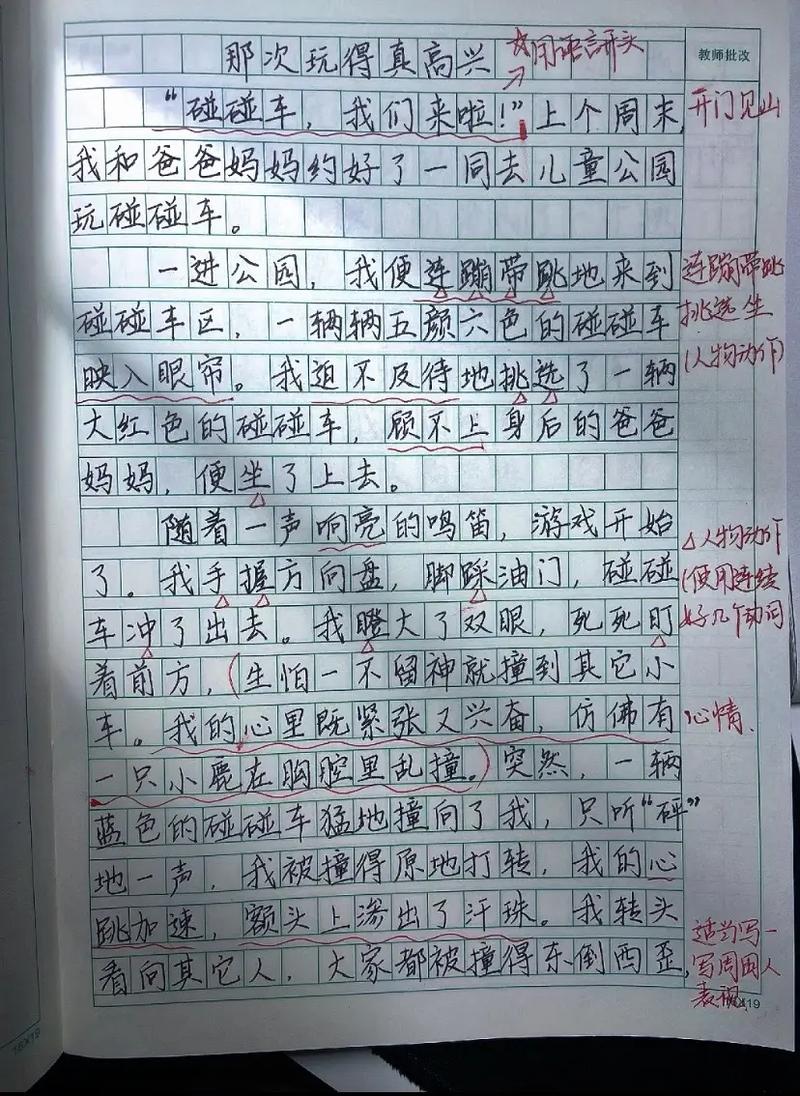 那次玩得真高兴
用语言开头
教师批改
“碰碰车，我们来啦！”上个周末，
开门见山
我和爸爸妈妈约好了一同去儿童公园
玩碰碰车。
一进公园，我便连蹦带跳地来到
连蹦带跳
碰碰车区，一辆辆五颜六色的碰碰车
挑选 坐
映入眼帘。我迫不及待地挑选了一辆
(人物动作)
大红色的碰碰车，顾不上身后的爸爸
妈妈，便坐了上去。
随着一声响亮的鸣笛，游戏开始
人物动作
了。我手握方向盘，脚踩油门，碰碰
(使用连续
车冲了出去。我瞪大了双眼，死死盯
好几个动词
着前方，(生怕一不留神就撞到其它小
车。我的心里既紧张又兴奋，仿佛有
心情、
一只小鹿在胸腔里乱撞。)突然，一辆
蓝色的碰碰车猛地撞向了我，只听“砰”
地一声，我被撞得原地打转，我的心
跳加速，额头上渗出了汗珠。我转头
适当写一
看向其它人，大家都被撞得东倒西歪，
写周围人
表现
19
18×19